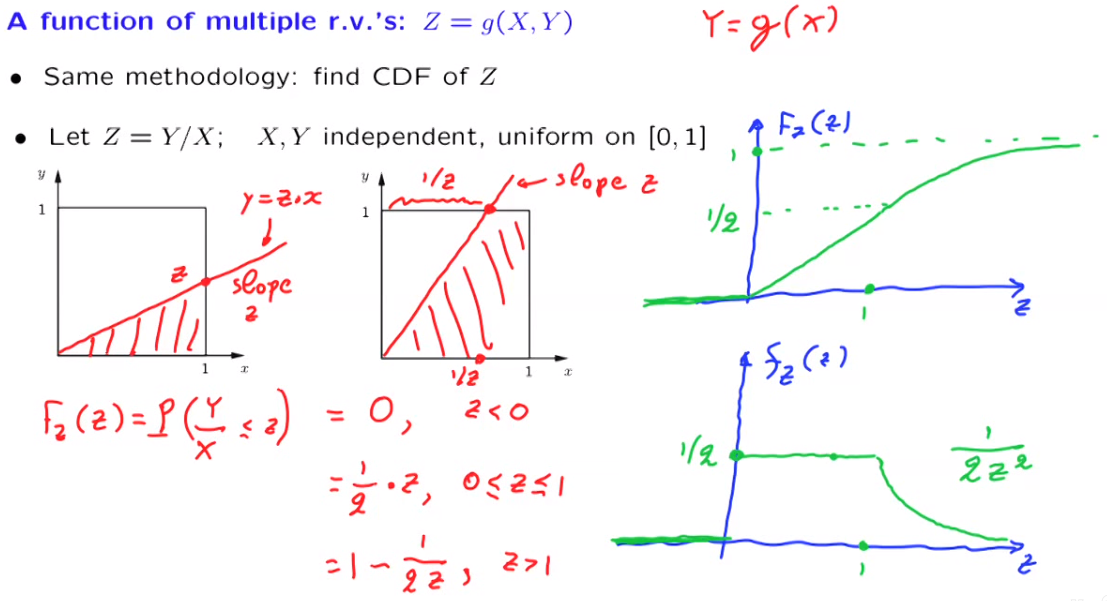 A function of multiple r.v.'s: Z = g(X, Y)
Y = g(x)
• Same methodology: find CDF of Z
• Let Z = Y/X; X, Y independent, uniform on [0, 1]
y
1
y = z·x
z
slope
z
1
x
y
1/z
← slope z
1
1/z
1
x
F_Z(z)
1
1/2
1
z
F_Z(z) = P(Y/X ≤ z) = 0, z < 0
= 1/2 · z, 0 ≤ z ≤ 1
= 1 − 1/(2z), z > 1
f_Z(z)
1/2
1/(2z²)
1
z